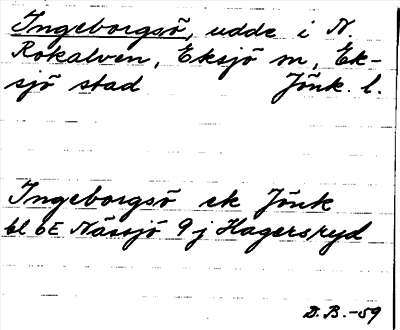 Ingeborgsö, udde i N.
Rokalven, Eksjö sn, Ek-
sjö stad Jönk. l.
Ingeborgsö ek Jönk
bl 6E Nässjö 9 j Hagersryd
D.B.-59